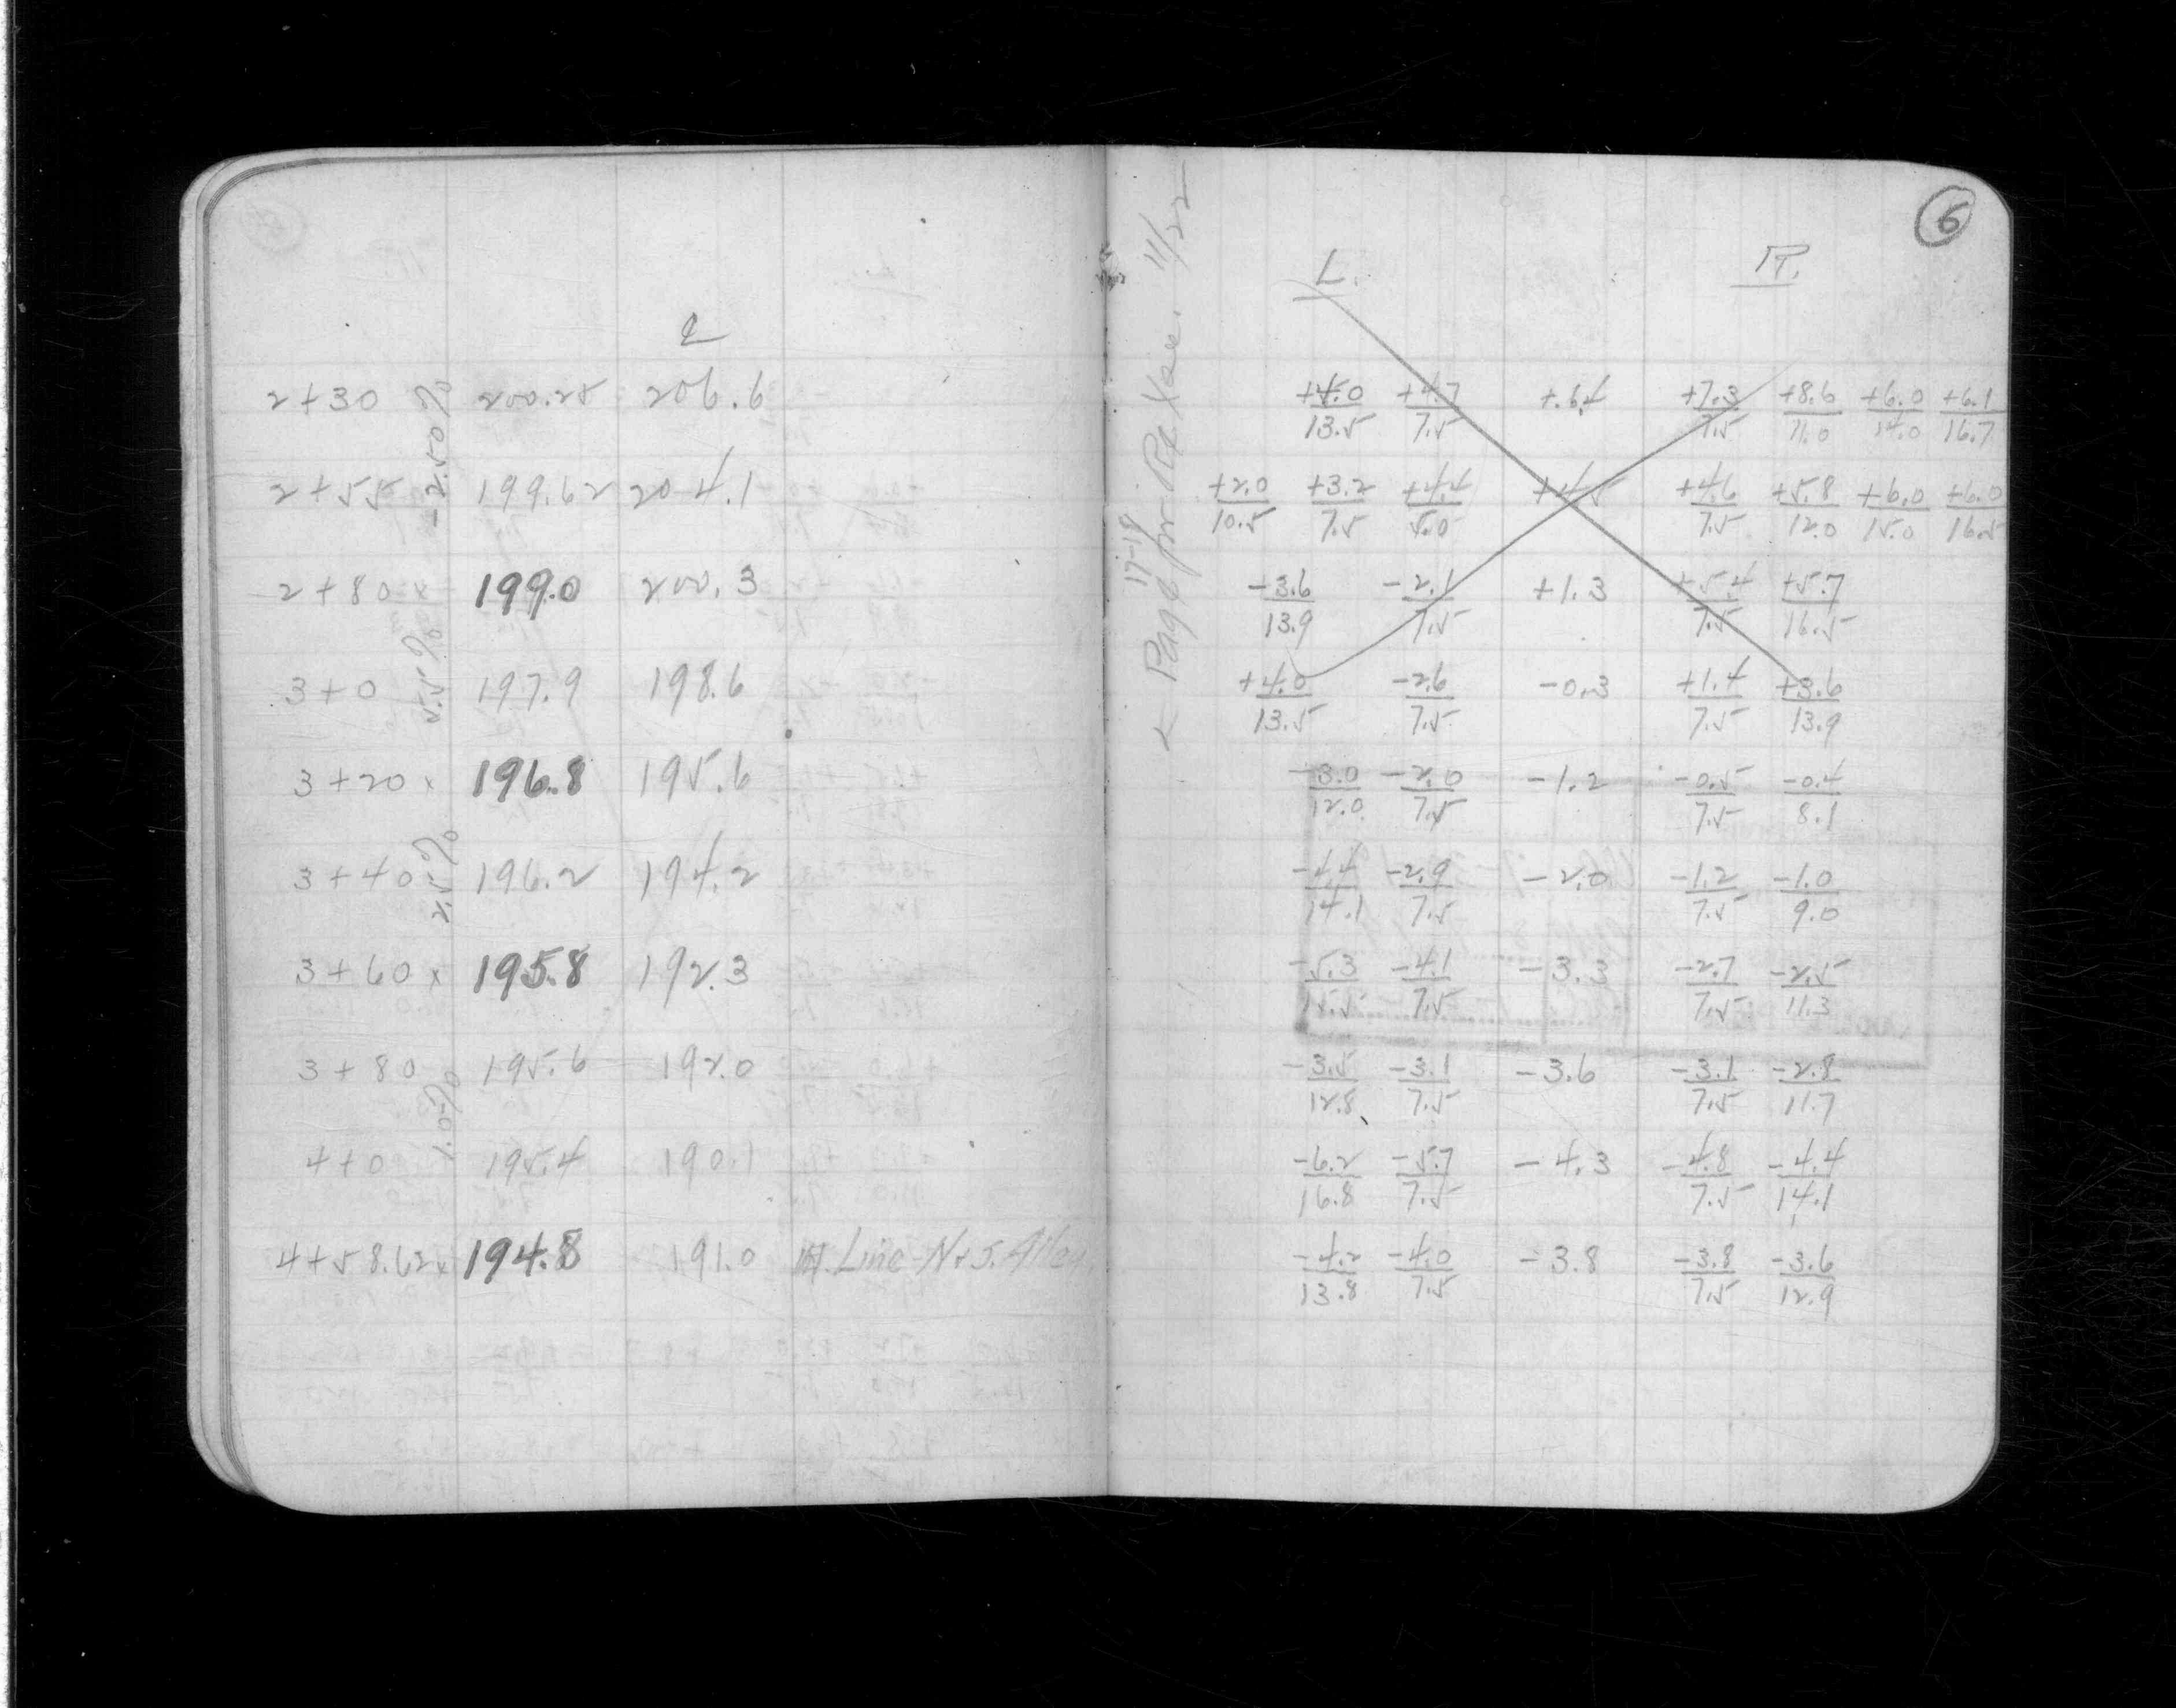 ℄
2+30 200.25 206.6
-2.50%
2+55 199.62 204.1
2+80 x 199.0 200.3
5.5%
3+0 197.9 198.6
3+20 x 196.8 195.6
3+40 196.2 194.2
2.5%
3+60 x 195.8 192.3
3+80 195.6 192.0
1.0%
4+0 195.4 190.1
4+58.62 x 194.8 191.0 Line - N & S. Alley
6
L. R.
17-18
Page for 11/22
+4.0/13.5 +4.7/7.5 +6.4 +7.3/7.5 +8.6/11.0 +6.0/14.0 +6.1/16.7
+2.0/10.5 +3.2/7.5 +4.4/5.0 +4.5 +4.6/7.5 +5.8/12.0 +6.0/15.0 +6.0/16.5
-3.6/13.9 -2.1/7.5 +1.3 +5.4/7.5 +5.7/16.5
+4.0/13.5 -2.6/7.5 -0.3 +1.4/7.5 +3.6/13.9
-3.0/12.0 -2.0/7.5 -1.2 -0.5/7.5 -0.4/8.1
-4.4/14.1 -2.9/7.5 -2.0 -1.2/7.5 -1.0/9.0
-5.3/15.5 -4.1/7.5 -3.3 -2.7/7.5 -2.5/11.3
-3.5/12.8 -3.1/7.5 -3.6 -3.1/7.5 -2.8/11.7
-6.2/16.8 -5.7/7.5 -4.3 -4.8/7.5 -4.4/14.1
-4.2/13.8 -4.0/7.5 -3.8 -3.8/7.5 -3.6/12.9